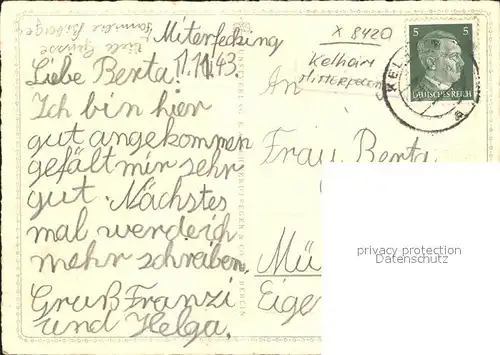 Miterfecking
1.11.43.
Liebe Berta!
Ich bin hier
gut angekommen
gefält mir sehr
gut. Nächstes
mal werde ich
mehr schreiben.
Gruß Franzi
und Helga.
Viele Grüsse
Familie
x 8420
Kelheim
An
Frau Berta
Mü
Eige
5 5
DEUTSCHES REICH
KEL
a
BERLIN
privacy protection
Datenschutz